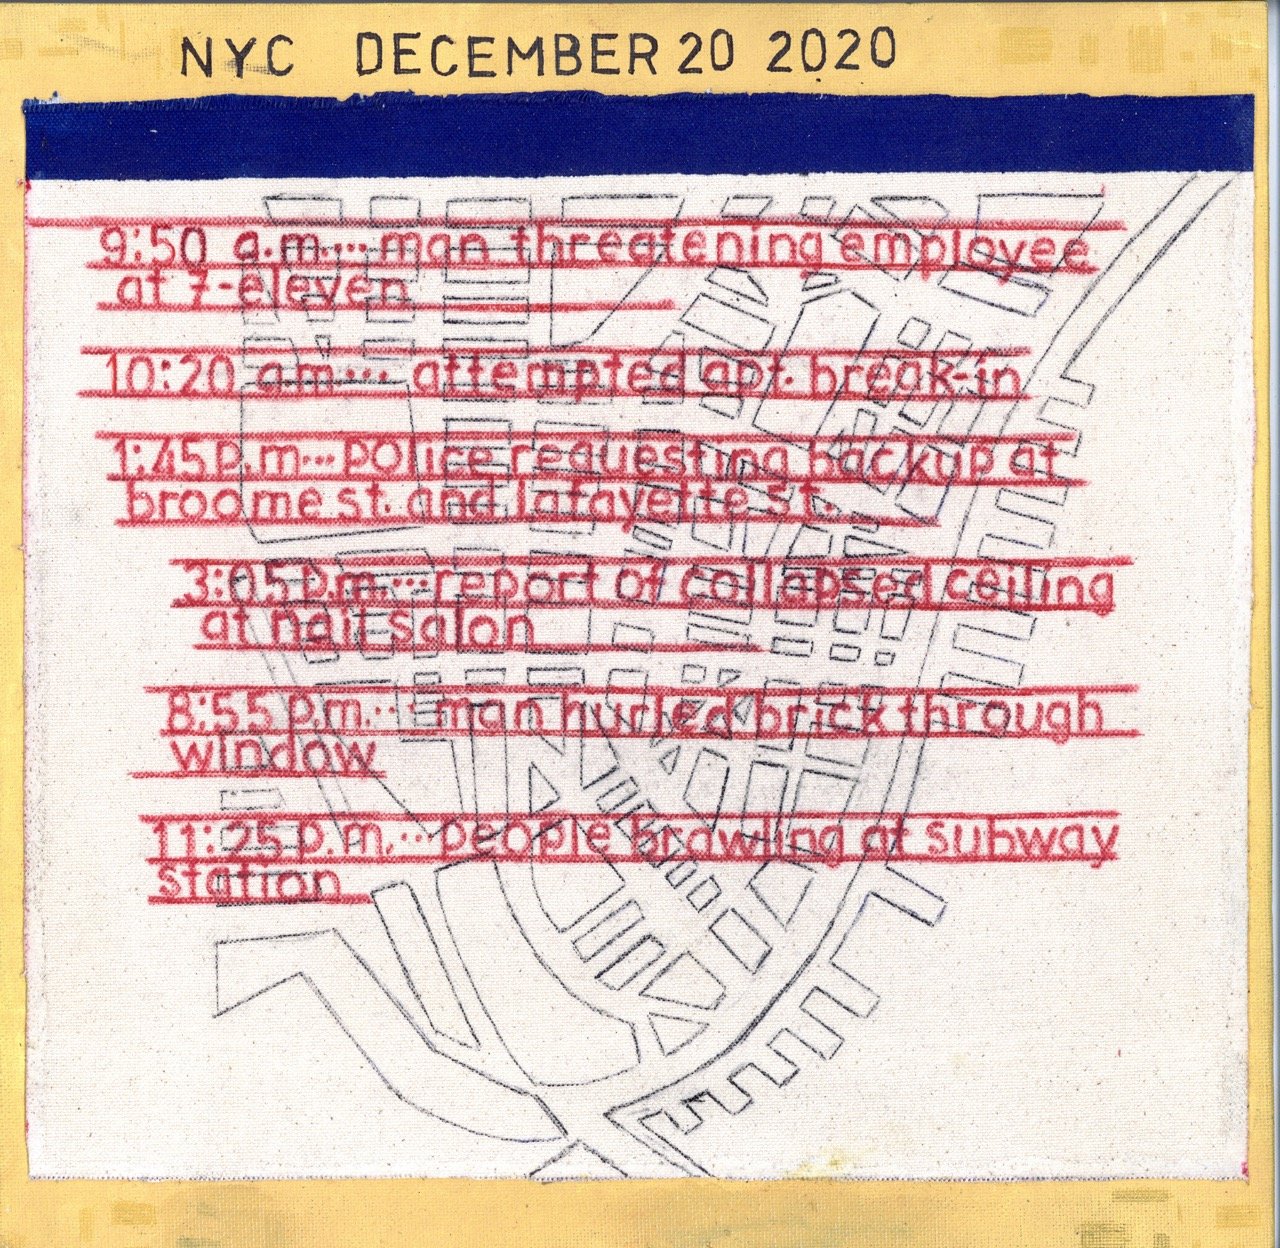 NYC DECEMBER 20 2020
9:50 a.m... man threatening employee
at 7-eleven
10:20 a.m... attempted apt. break-in
1:45 p.m... police requesting backup at
broome st. and lafayette st.
3:05 p.m... report of collapsed ceiling
at nail salon
8:55 p.m... man hurled brick through
window
11:25 p.m... people brawling at subway
station